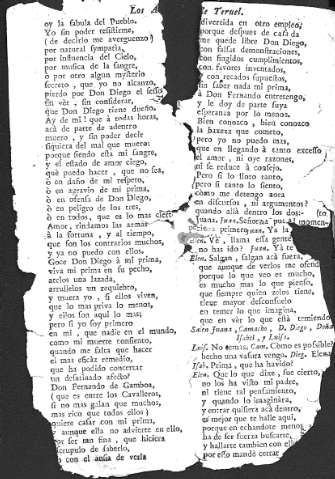 Los A
de Teruel.
oy la fabula del Pueblo.
Yo sin poder resistirme,
(de decirlo me averguenzo)
por natural sympatia,
por influencia del Cielo,
por musica de la sangre,
ò por otro algun mysterio
secreto, que yo no alcanzo,
pierdo por Don Diego el seso
sin vèr, sin considerar,
que Don Diego tiene dueño.
Ay de mi! que à todas horas,
acà de parte de adentro
muero, y sin poder desir
siquiera del mal que muero:
porque siendo esta mi sangre,
y el estado de amor ciego,
què puedo hacer, que no sea,
ò en daño de mi respeto,
ò en agravio de mi prima,
ò en ofensa de Don Diego,
ò en peligro de los tres,
ò en todos, que es lo mas cierto
Amor, rindamos las armas
à la fortuna, y al tiempo,
que son los contrarios muchos,
y ya no puedo con ellos.
Goce Don Diego à mi prima,
viva mi prima en su pecho,
atelos una lazada,
arrullelos un requiebro,
y muera yo, si ellos viven,
que lo mas priva lo menos,
y ellos son aqui lo mas;
pero si yo soy primero
en mi, que nadie en el mundo,
como mi muerte consiento,
quando me falta que hacer
el mas eficàz remedio,
que ha podido concertar
un desatinado afecto?
Don Fernando de Gamboa,
(que es entre los Cavalleros,
si no mas galan que muchos,
mas rico que todos ellos)
quiere casar con mi prima,
y aunque ella no advierte en ello,
por ser tan fina, que hiciera
escrupulo de saberlo,
con el ansia de verla
divertida en otro empleo,
porque despues de casada
me quede libre Don Diego,
con falsas demonstraciones,
con fingidos cumplimientos,
con favores inventados,
con recados supuestos,
sin saber nada mi prima,
à Don Fernando entretengo,
y le doy de parte suya
esperanza por lo menos.
Bien conozco, bien conozco
la baxeza que cometo,
pero yo no puedo mas,
que en llegando à tanto excesso
el amor, ni oye razones,
ni se reduce à consejo.
Pero si lo siento tanto,
pero si tanto lo siento,
còmo me detengo aora
en discursos, ni argumentos?
quando allà dentro los dos-
Juana. Juan. Señora? (to
Vè, llama essa gente
no has ido? Juan. Yà te
Elen. Salgan, salgan acà fuera,
que aunque de verlos me ofendo
porque lo que veo es mucho,
es mucho mas lo que pienso,
que siempre quien zelos tiene,
tiene mayor desconsuelo
en temer lo que imagina,
que en vèr lo que està temiendo
Salen Juana, Camacho, D. Diego, Doña
Isabèl, y Luisa.
Luis. No temas. Cam. Como es possible
hecho una vasura vengo. Dieg. Elena
Isab. Prima, que ha havido?
Elen. Que lo que dixe, fue cierto,
no los ha visto mi padre,
ni tiene tal pensamiento,
y quando lo imaginàra,
y entrar quisiera acà dentro,
es mejor que te halle aqui,
porque en echandote menos,
ha de ser fuerza buscarte,
y hallarte tambien con ello
por esso mandè cerrar